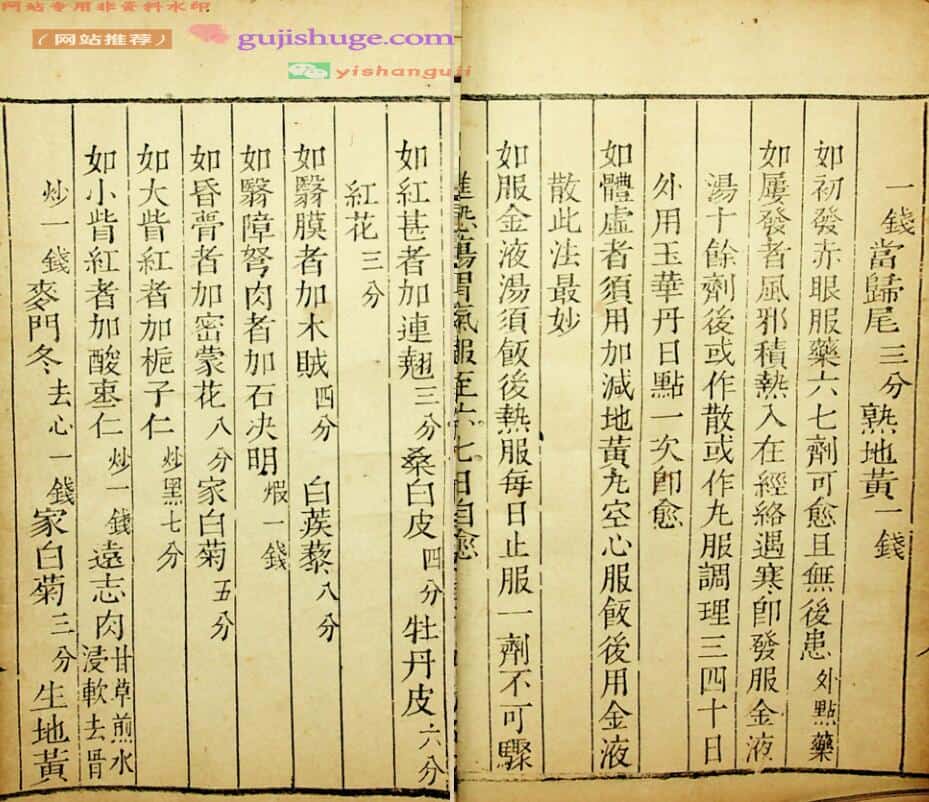 网站专用非资料水印
（网站推荐）
gujishuge.com
yishanguji
一錢當歸尾三分熟地黃一錢
如初發赤眼服藥六七劑可愈且無後患外點藥
如屢發者風邪積熱入在經絡遇寒卽發服金液
湯十餘劑後或作散或作丸服調理三四十日
外用玉華丹日點一次卽愈
如體虛者須用加減地黃丸空心服飯後用金液
散此法最妙
如服金液湯須飯後熱服每日止服一劑不可驟
進恐傷胃氣服至六七日自愈
如紅甚者加連翹三分桑白皮四分牡丹皮六分
紅花三分
如翳膜者加木賊四分白蒺藜八分
如翳障努肉者加石決明煆一錢
如昏瞢者加密蒙花八分家白菊五分
如大眥紅者加梔子仁炒黑七分
如小眥紅者加酸棗仁炒一錢遠志肉甘草煎水浸軟去骨
炒一錢麥門冬去心一錢家白菊三分生地黃